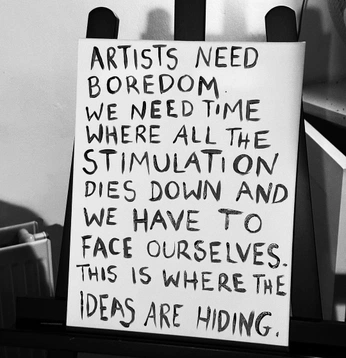 ARTISTS NEED
BOREDOM.
WE NEED TIME
WHERE ALL THE
STIMULATION
DIES DOWN AND
WE HAVE TO
FACE OURSELVES.
THIS IS WHERE THE
IDEAS ARE HIDING.